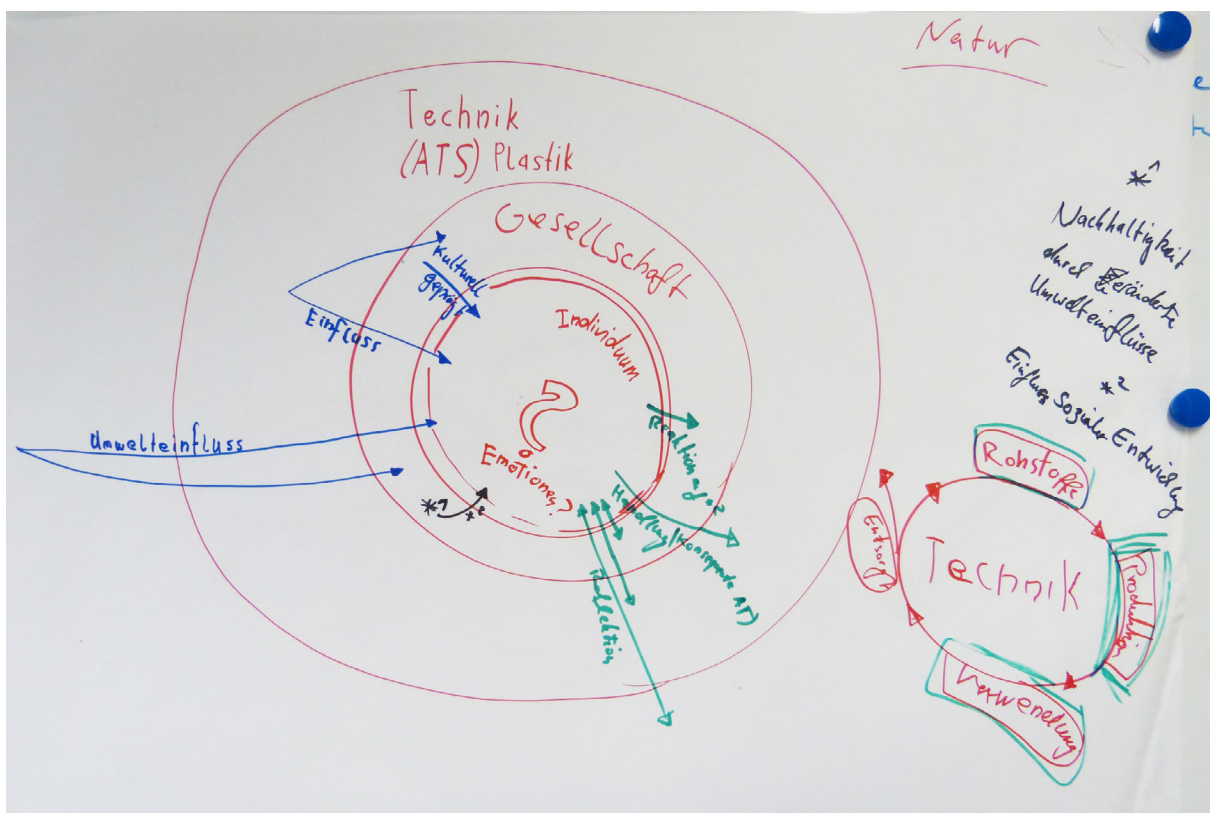 Natur
Technik
(ATS) Plastik
Gesellschaft
Kulturell
geprägt
Einfluss
Individuum
Umwelteinfluss
Emotionen?
*1
*2
Reaktion auf *2
Handlung/Konsequente
Reflektion
*1
Nachhaltigkeit
durch Veränderte
Umwelteinflüsse
*2
Einfluss Sozialer Entwicklung
Rohstoffe
Technik
Produktion
Verwendung